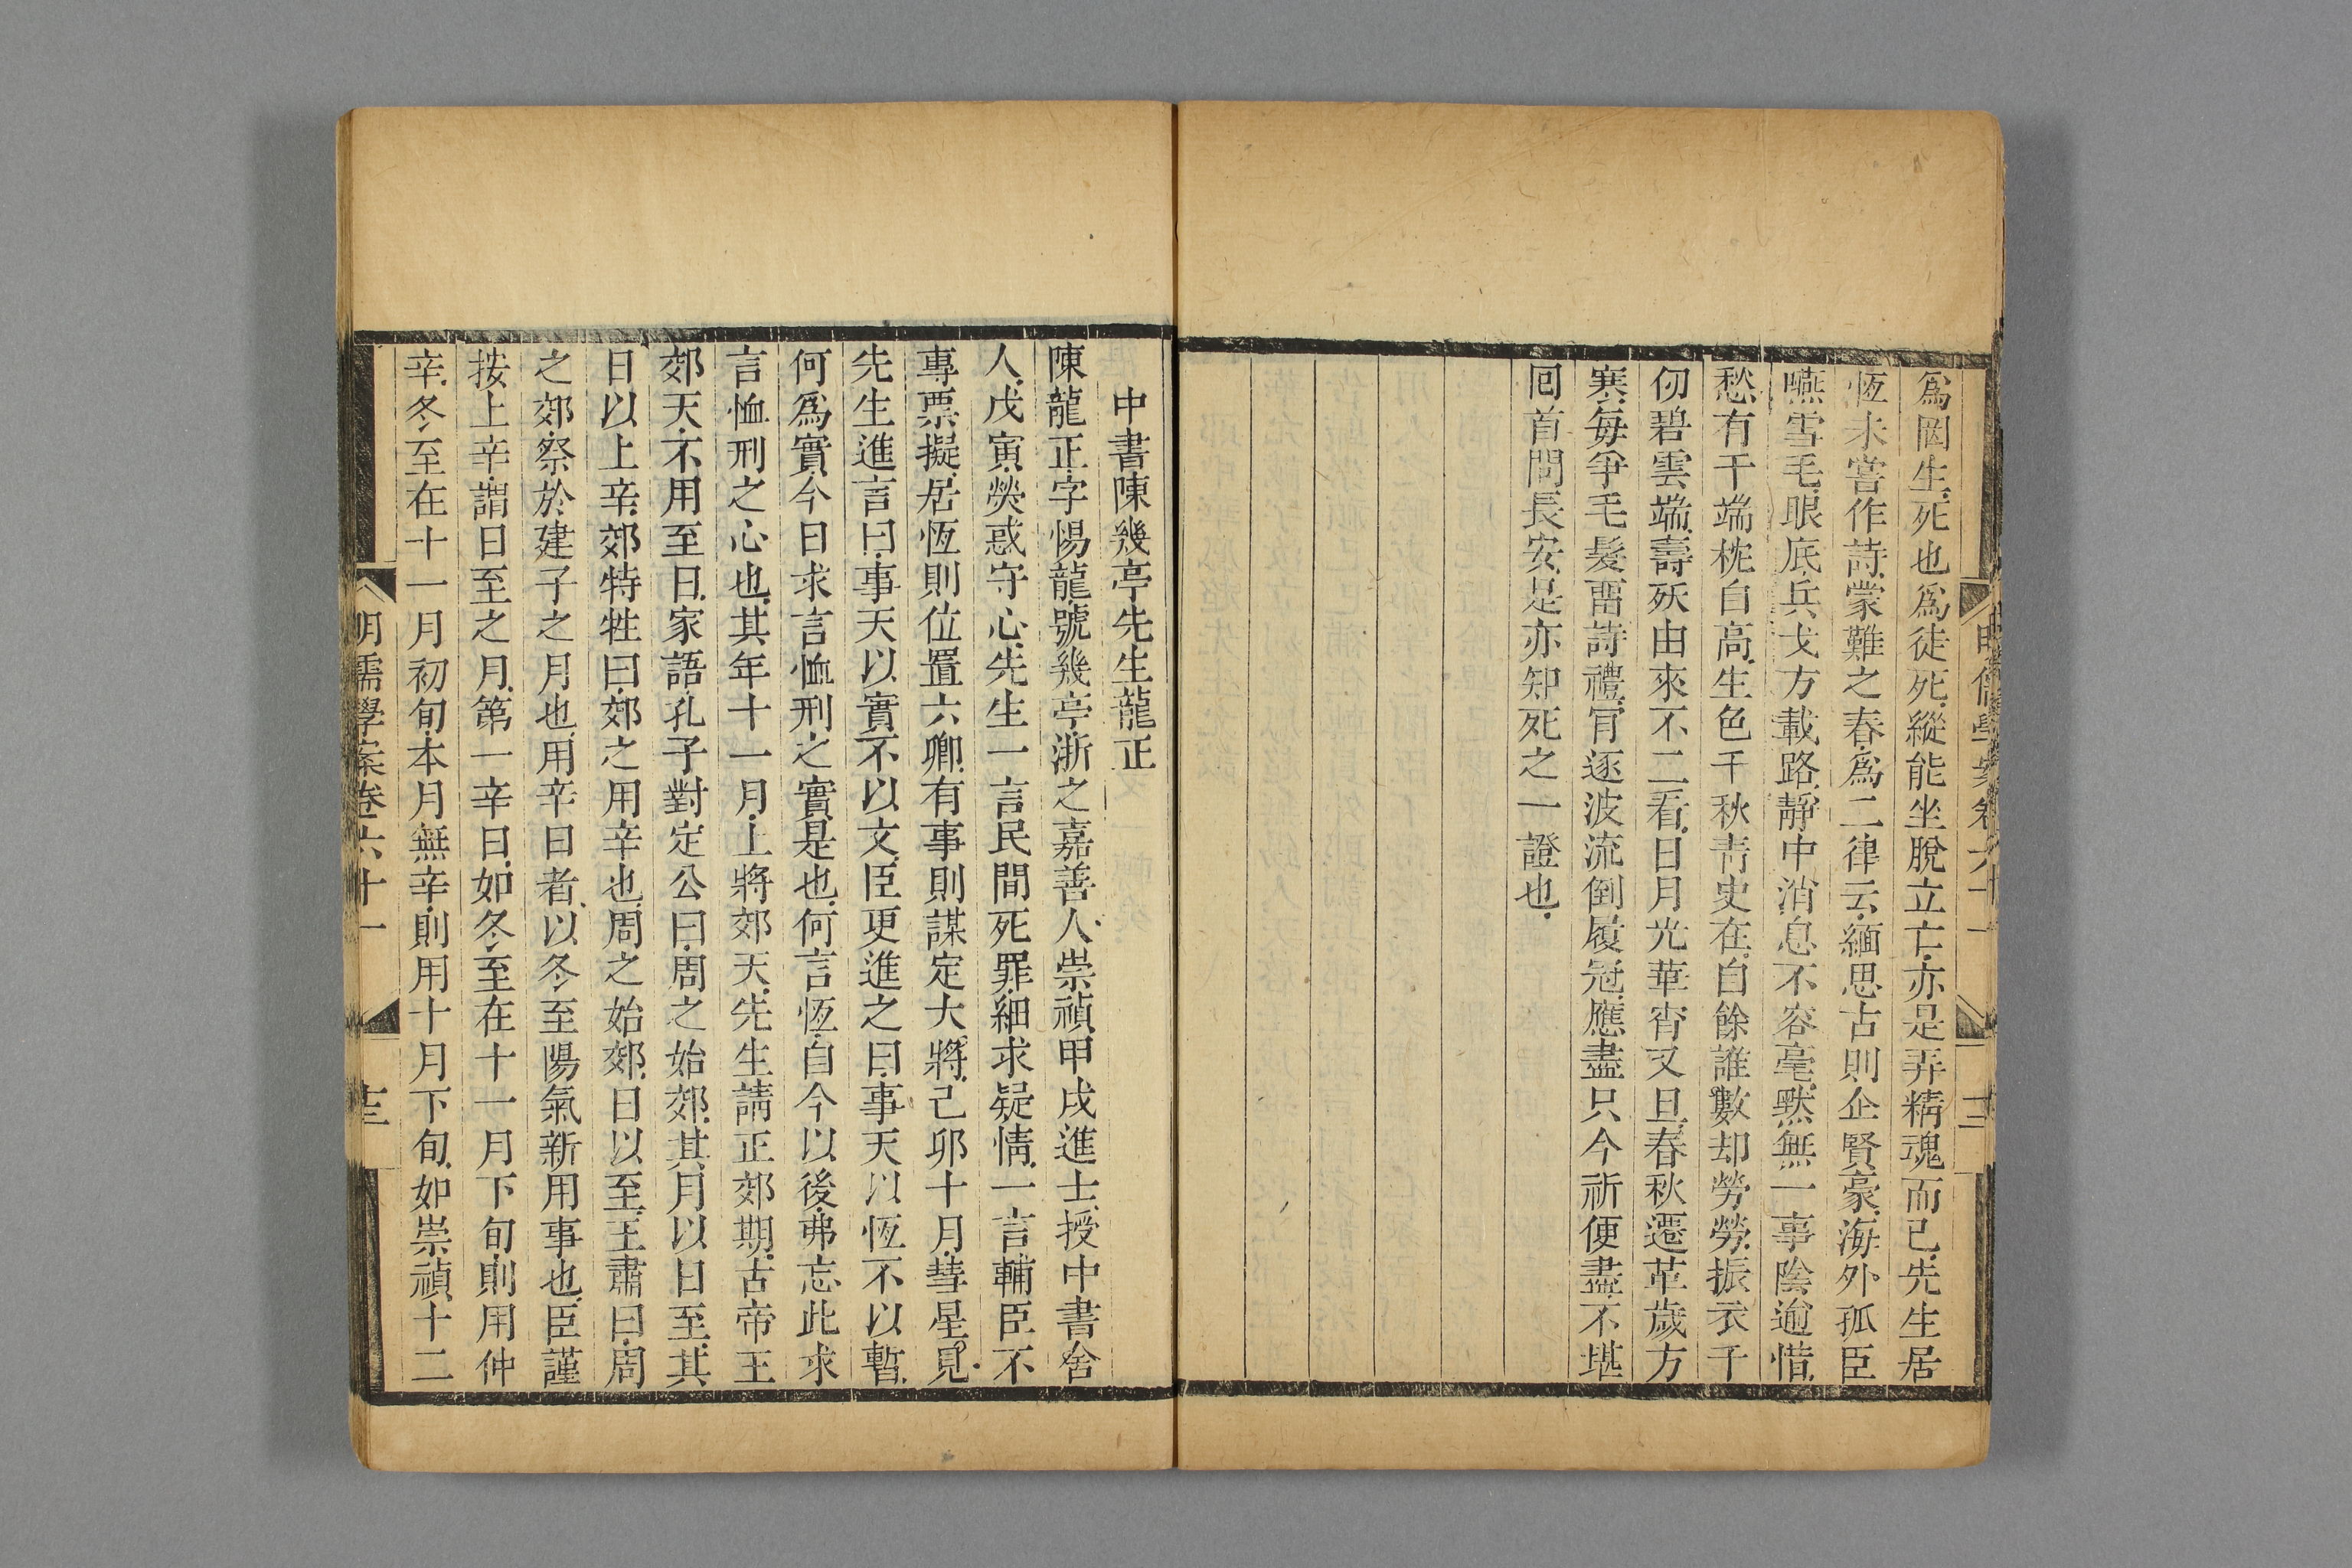 爲罔生死也爲徒死縱能坐脫立亡亦是弄精魂而已先生居
恆未嘗作詩蒙難之春爲二律云緬思古則企賢豪海外孤臣
嚥雪毛眼底兵戈方載路靜中消息不容毫默無一事陰逾惜
愁有千端枕自高生色千秋靑史在自餘誰數却勞勞振衣千
仞碧雲端壽殀由來不二看日月光華宵又旦春秋遷革歲方
寒每爭毛髮畱詩禮肎逐波流倒履冠應盡只今祈便盡不堪
囘首問長安是亦知死之一證也
中書陳幾亭先生龍正
陳龍正字惕龍號幾亭浙之嘉善人崇禎甲戌進士授中書舍
人戊寅熒惑守心先生一言民間死罪細求疑情一言輔臣不
專票擬居恆則位置六卿有事則謀定大將己卯十月彗星見
先生進言曰事天以實不以文臣更進之曰事天以恆不以暫
何爲實今日求言恤刑之實是也何言恆自今以後弗忘此求
言恤刑之心也其年十一月上將郊天先生請正郊期古帝王
郊天不用至日家語孔子對定公曰周之始郊其月以日至其
日以上辛郊特牲曰郊之用辛也周之始郊日以至王肅曰周
之郊祭於建子之月也用辛日者以冬至陽氣新用事也臣謹
按上辛謂日至之月第一辛日如冬至在十一月下旬則用仲
辛冬至在十一月初旬本月無辛則用十月下旬如崇禎十二
明儒學案卷六十一